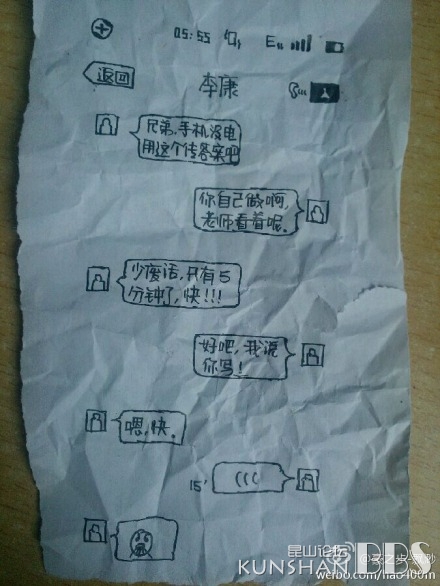 05:55 E
返回
李康
兄弟,手机没电
用这个传答案吧
你自己做啊,
老师看着呢.
少废话,只有5
分钟了,快!!!
好吧,我说
你写!
嗯,快.
15"
昆山论坛
KUNSHAN BBS
weibo.com/hao400m